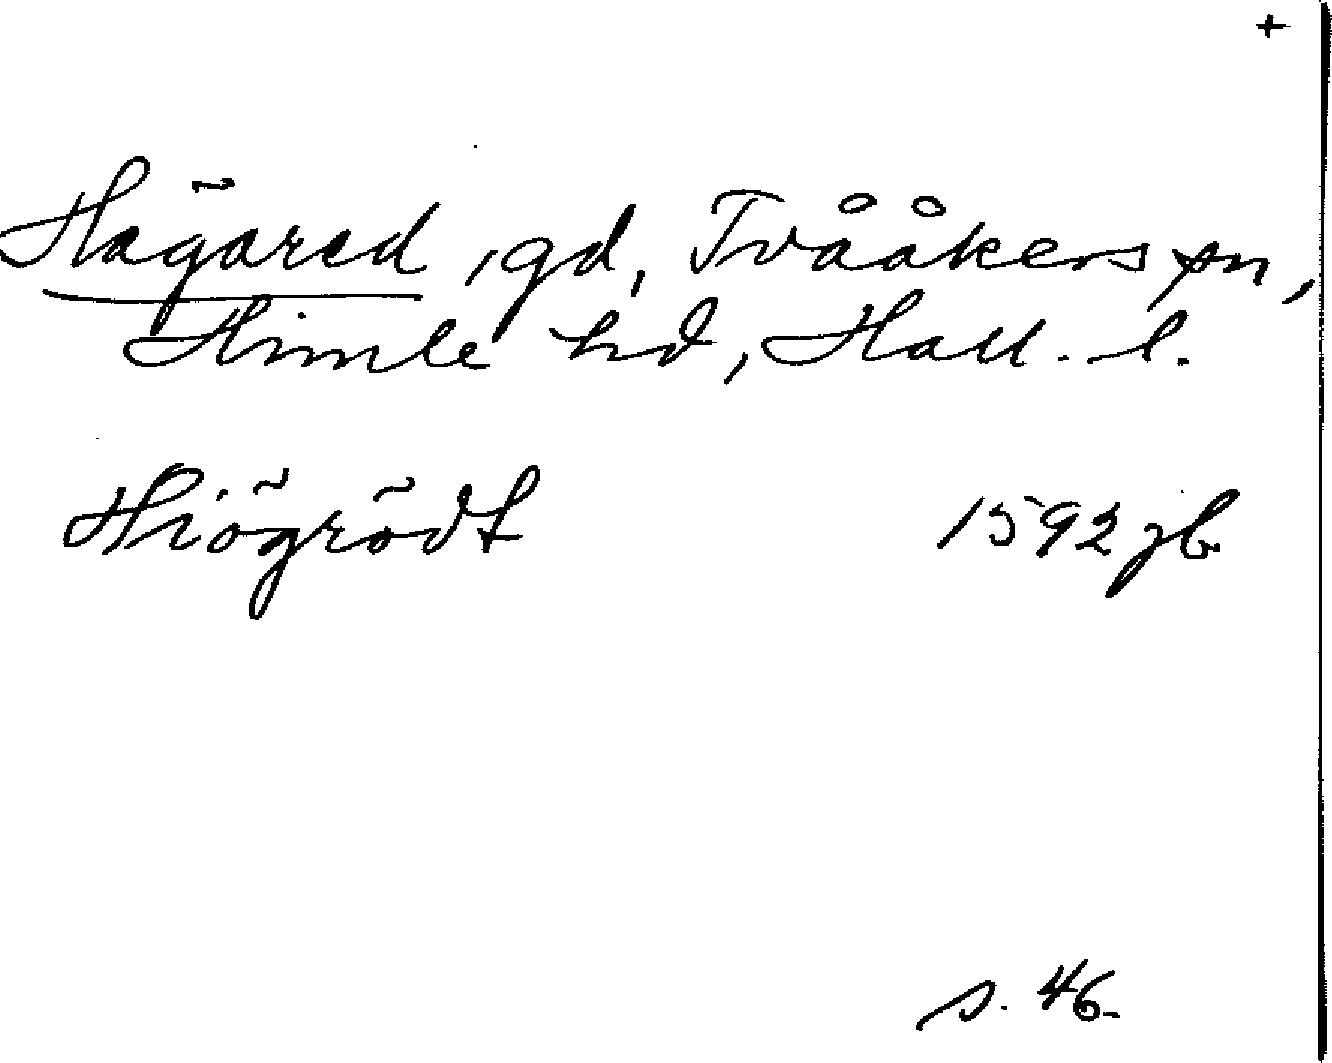 +
Hägared, gd, Tvååkers sn,
Himle hd, Hall. l.
Hiögrödt 1592 jb
s. 46.